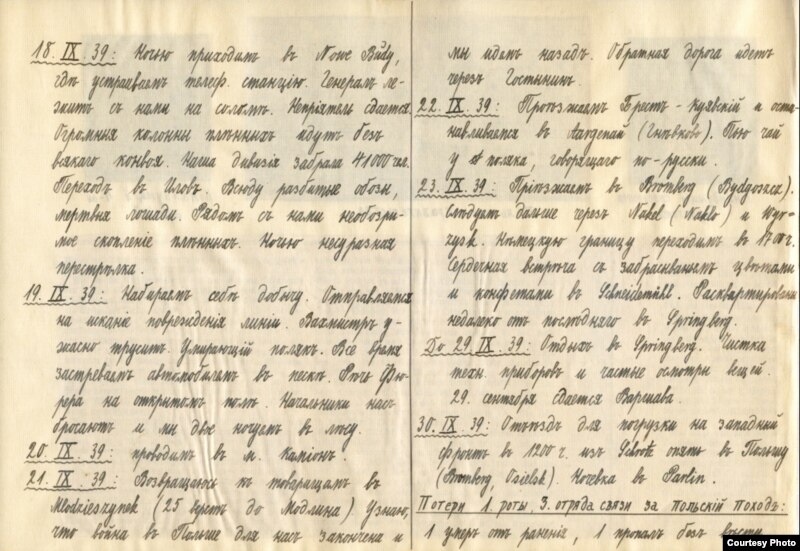 18. IX. 39: Ночью приходимъ въ Nowe Budy,
гдѣ устраиваемъ телеф. станцію. Генералъ ле-
житъ съ нами на соломѣ. Непріятель сдается.
Огромныя колонны плѣнныхъ идутъ безъ
всякаго конвоя. Наша дивизія забрала 41000 чел.
Переходъ въ Иловъ. Всюду разбитые обозы,
мертвыя лошади. Рядомъ съ нами необозри-
мое скопленіе плѣнныхъ. Ночью несуразная
перестрѣлка.
19. IX. 39: Набираемъ себѣ добычу. Отправляемся
на исканіе поврежденія линіи. Вахмистръ у-
жасно труситъ. Умирающій полякъ. Все время
застреваемъ автомобилемъ въ пескѣ. Рѣчь Фю-
рера на открытомъ полѣ. Начальники насъ
бросаютъ и мы двое ночуемъ въ лѣсу.
20. IX. 39: проводимъ въ м. Кампіон.
21. IX. 39: Возвращаюсь къ товарищамъ въ
Młodzieszynek (25 верстъ до Модлина). Узнаю,
что война въ Польшѣ для насъ закончена и
мы идемъ назадъ. Обратная дорога идетъ
черезъ Гостынин.
22. IX. 39: Проѣзжаемъ Брестъ-куявскій и оста-
навливаемся въ Argenau (Гнѣвково). Пью чай
у поляка, говорящаго по-русски.
23. IX. 39: Пріѣзжаемъ въ Bromberg (Bydgoszcz).
Слѣдуемъ дальше черезъ Nakel (Nakło) и Wyr-
zysk. Нѣмецкую границу переходимъ въ 1700 ч.
Сердечная встрѣча съ забрасываніемъ цвѣтами
и конфетами въ Schneidemühl. Расквартированы
недалеко отъ послѣдняго въ Springberg.
До 29. IX. 39: Отдыхъ въ Springberg. Чистка
техн. приборовъ и частые осмотры вещей.
29. сентября сдается Варшава.
30. IX. 39: Отъѣздъ для погрузки на западный
фронтъ въ 1200 ч. изъ опять въ Польшу
(Bromberg, Osielsk). Ночевка въ Parlin.
Потери 1 роты, 3. отряда связи за польскій походъ:
1 умеръ отъ раненія, 1 пропалъ безъ вѣсти
Courtesy Photo